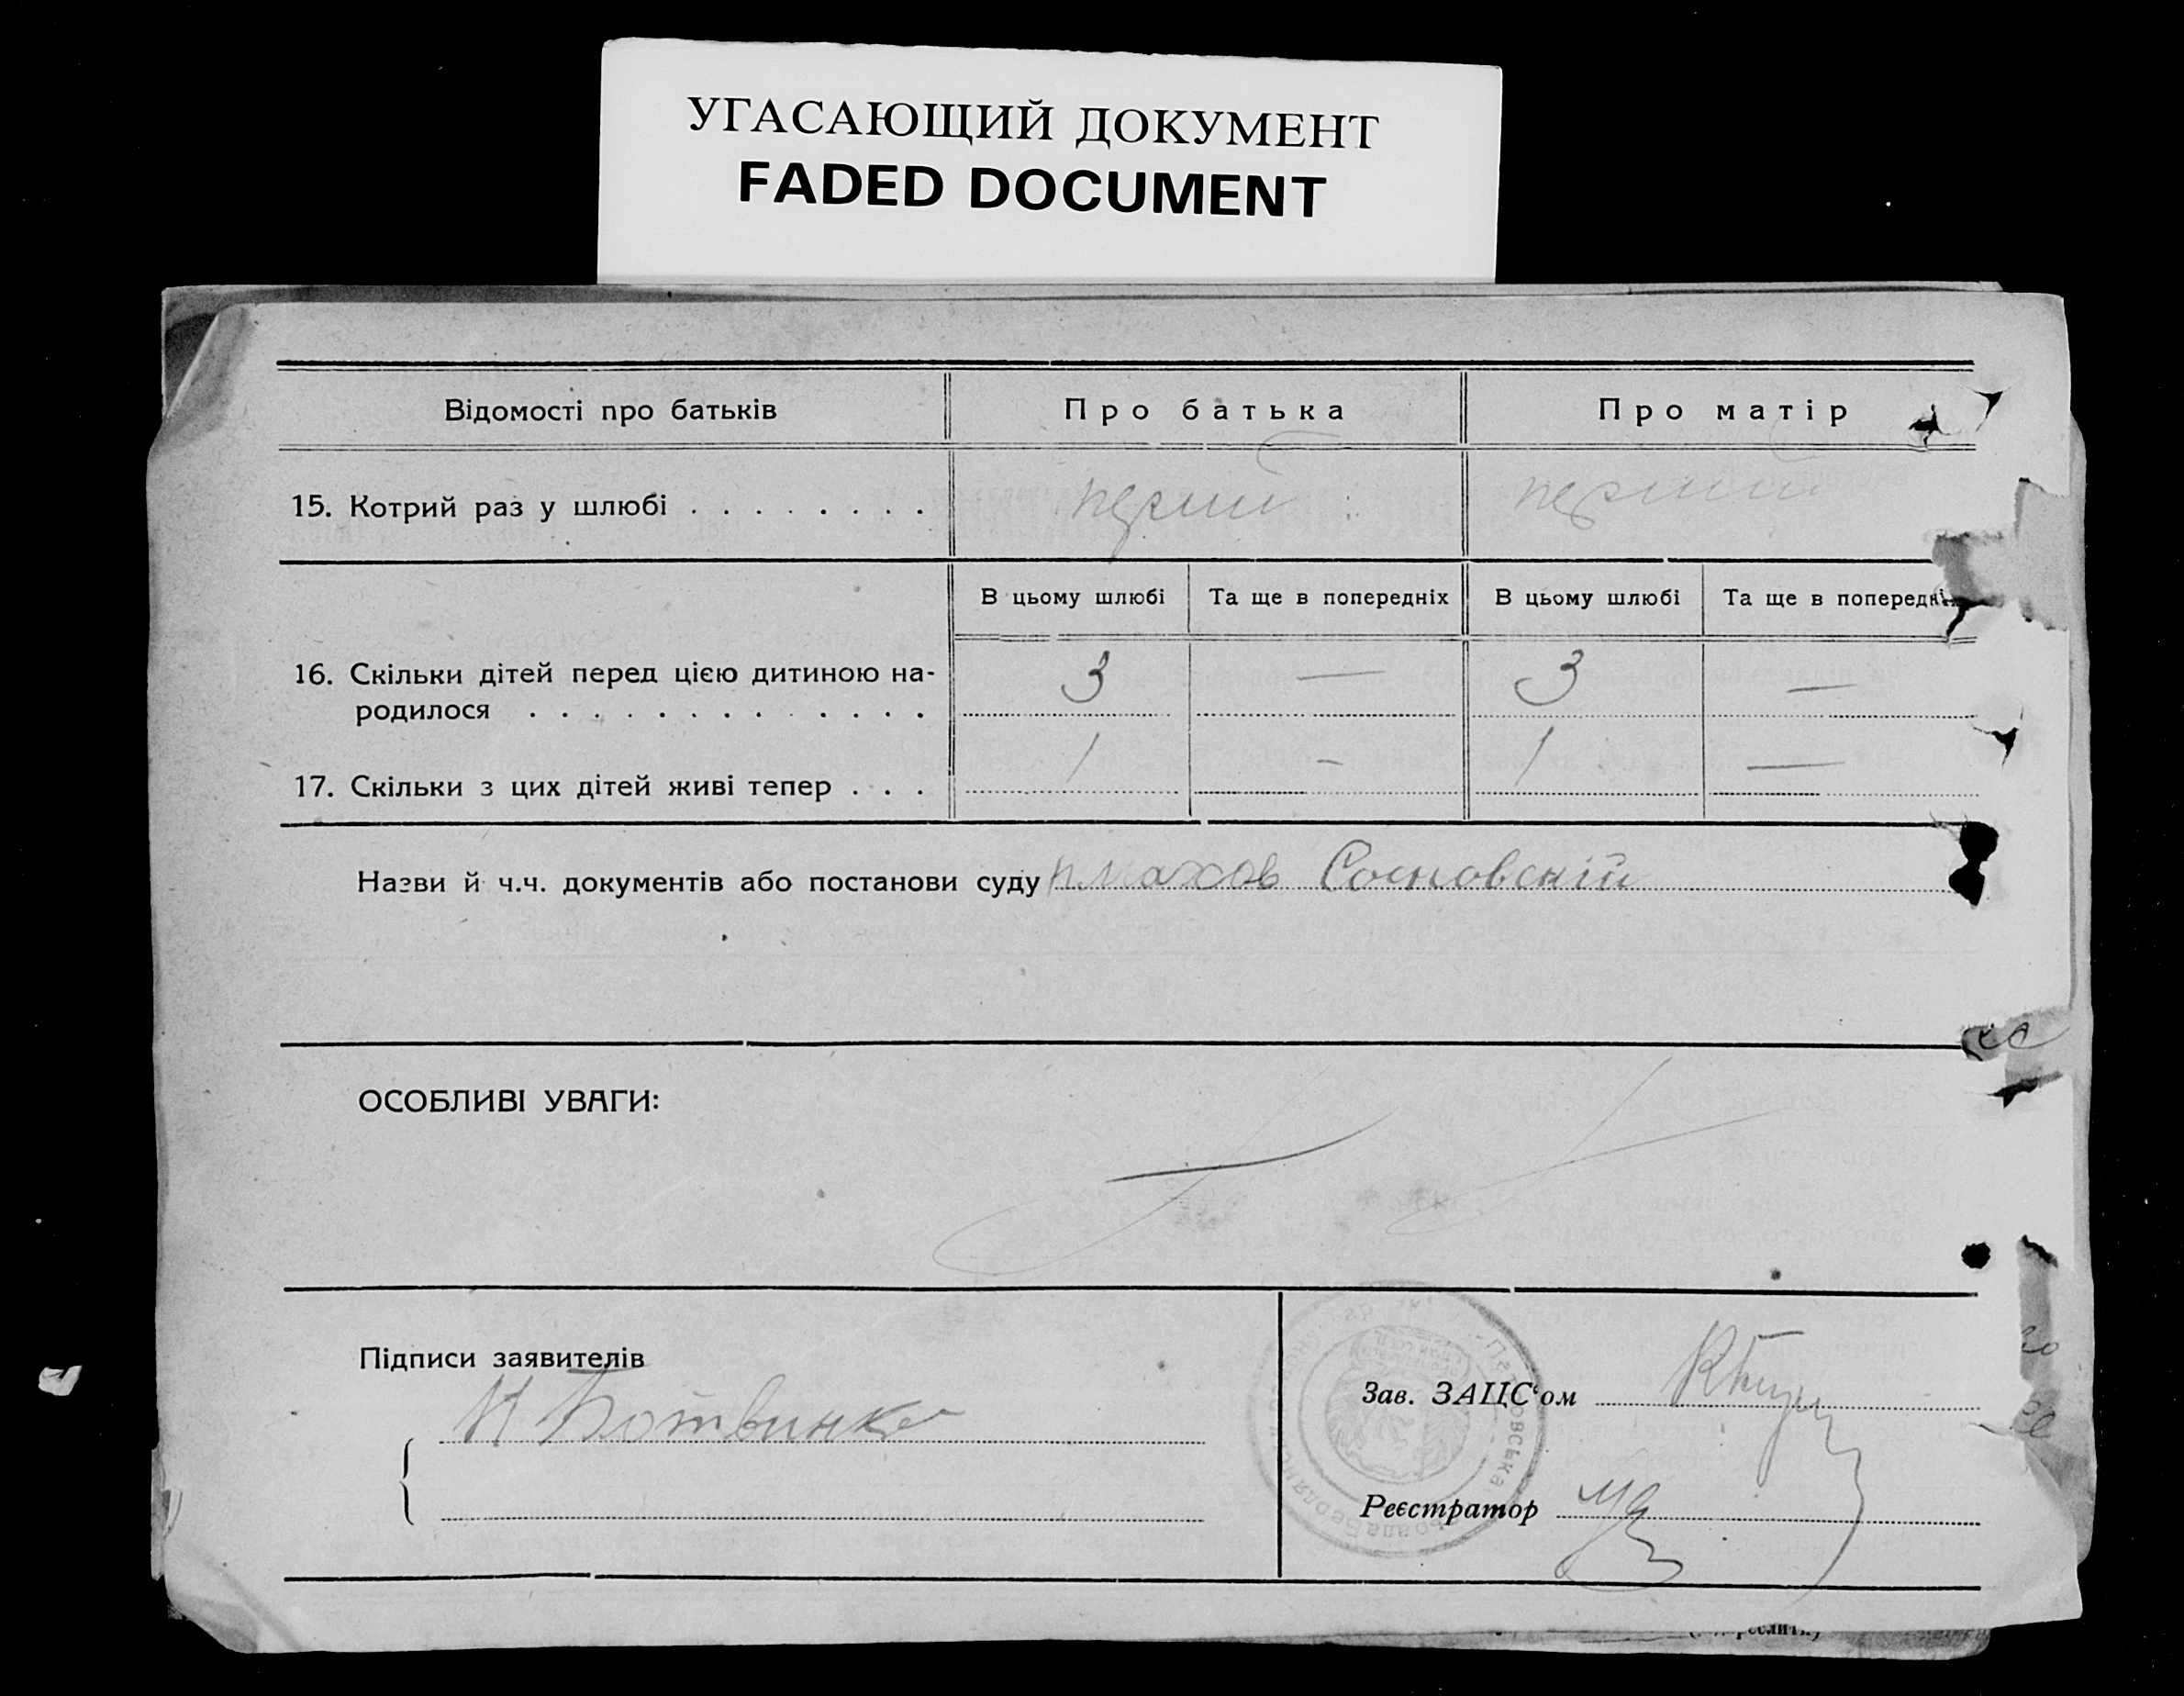 УГАСАЮЩИЙ ДОКУМЕНТ
FADED DOCUMENT
Відомості про батьків Про батька Про матір
15. Котрий раз у шлюбі . . . . . . . . перший перший
В цьому шлюбі Та ще в попередніх В цьому шлюбі Та ще в попередні
16. Скільки дітей перед цією дитиною на-
родилося . . . . . . . . . . . . . 3 — 3 —
17. Скільки з цих дітей живі тепер . . . 1 - 1 —
Назви й ч.ч. документів або постанови суду Сосновский
ОСОБЛИВІ УВАГИ:
Підписи заявителів
Н Ботвинко
Зав. ЗАЦС‘ом
Реєстратор